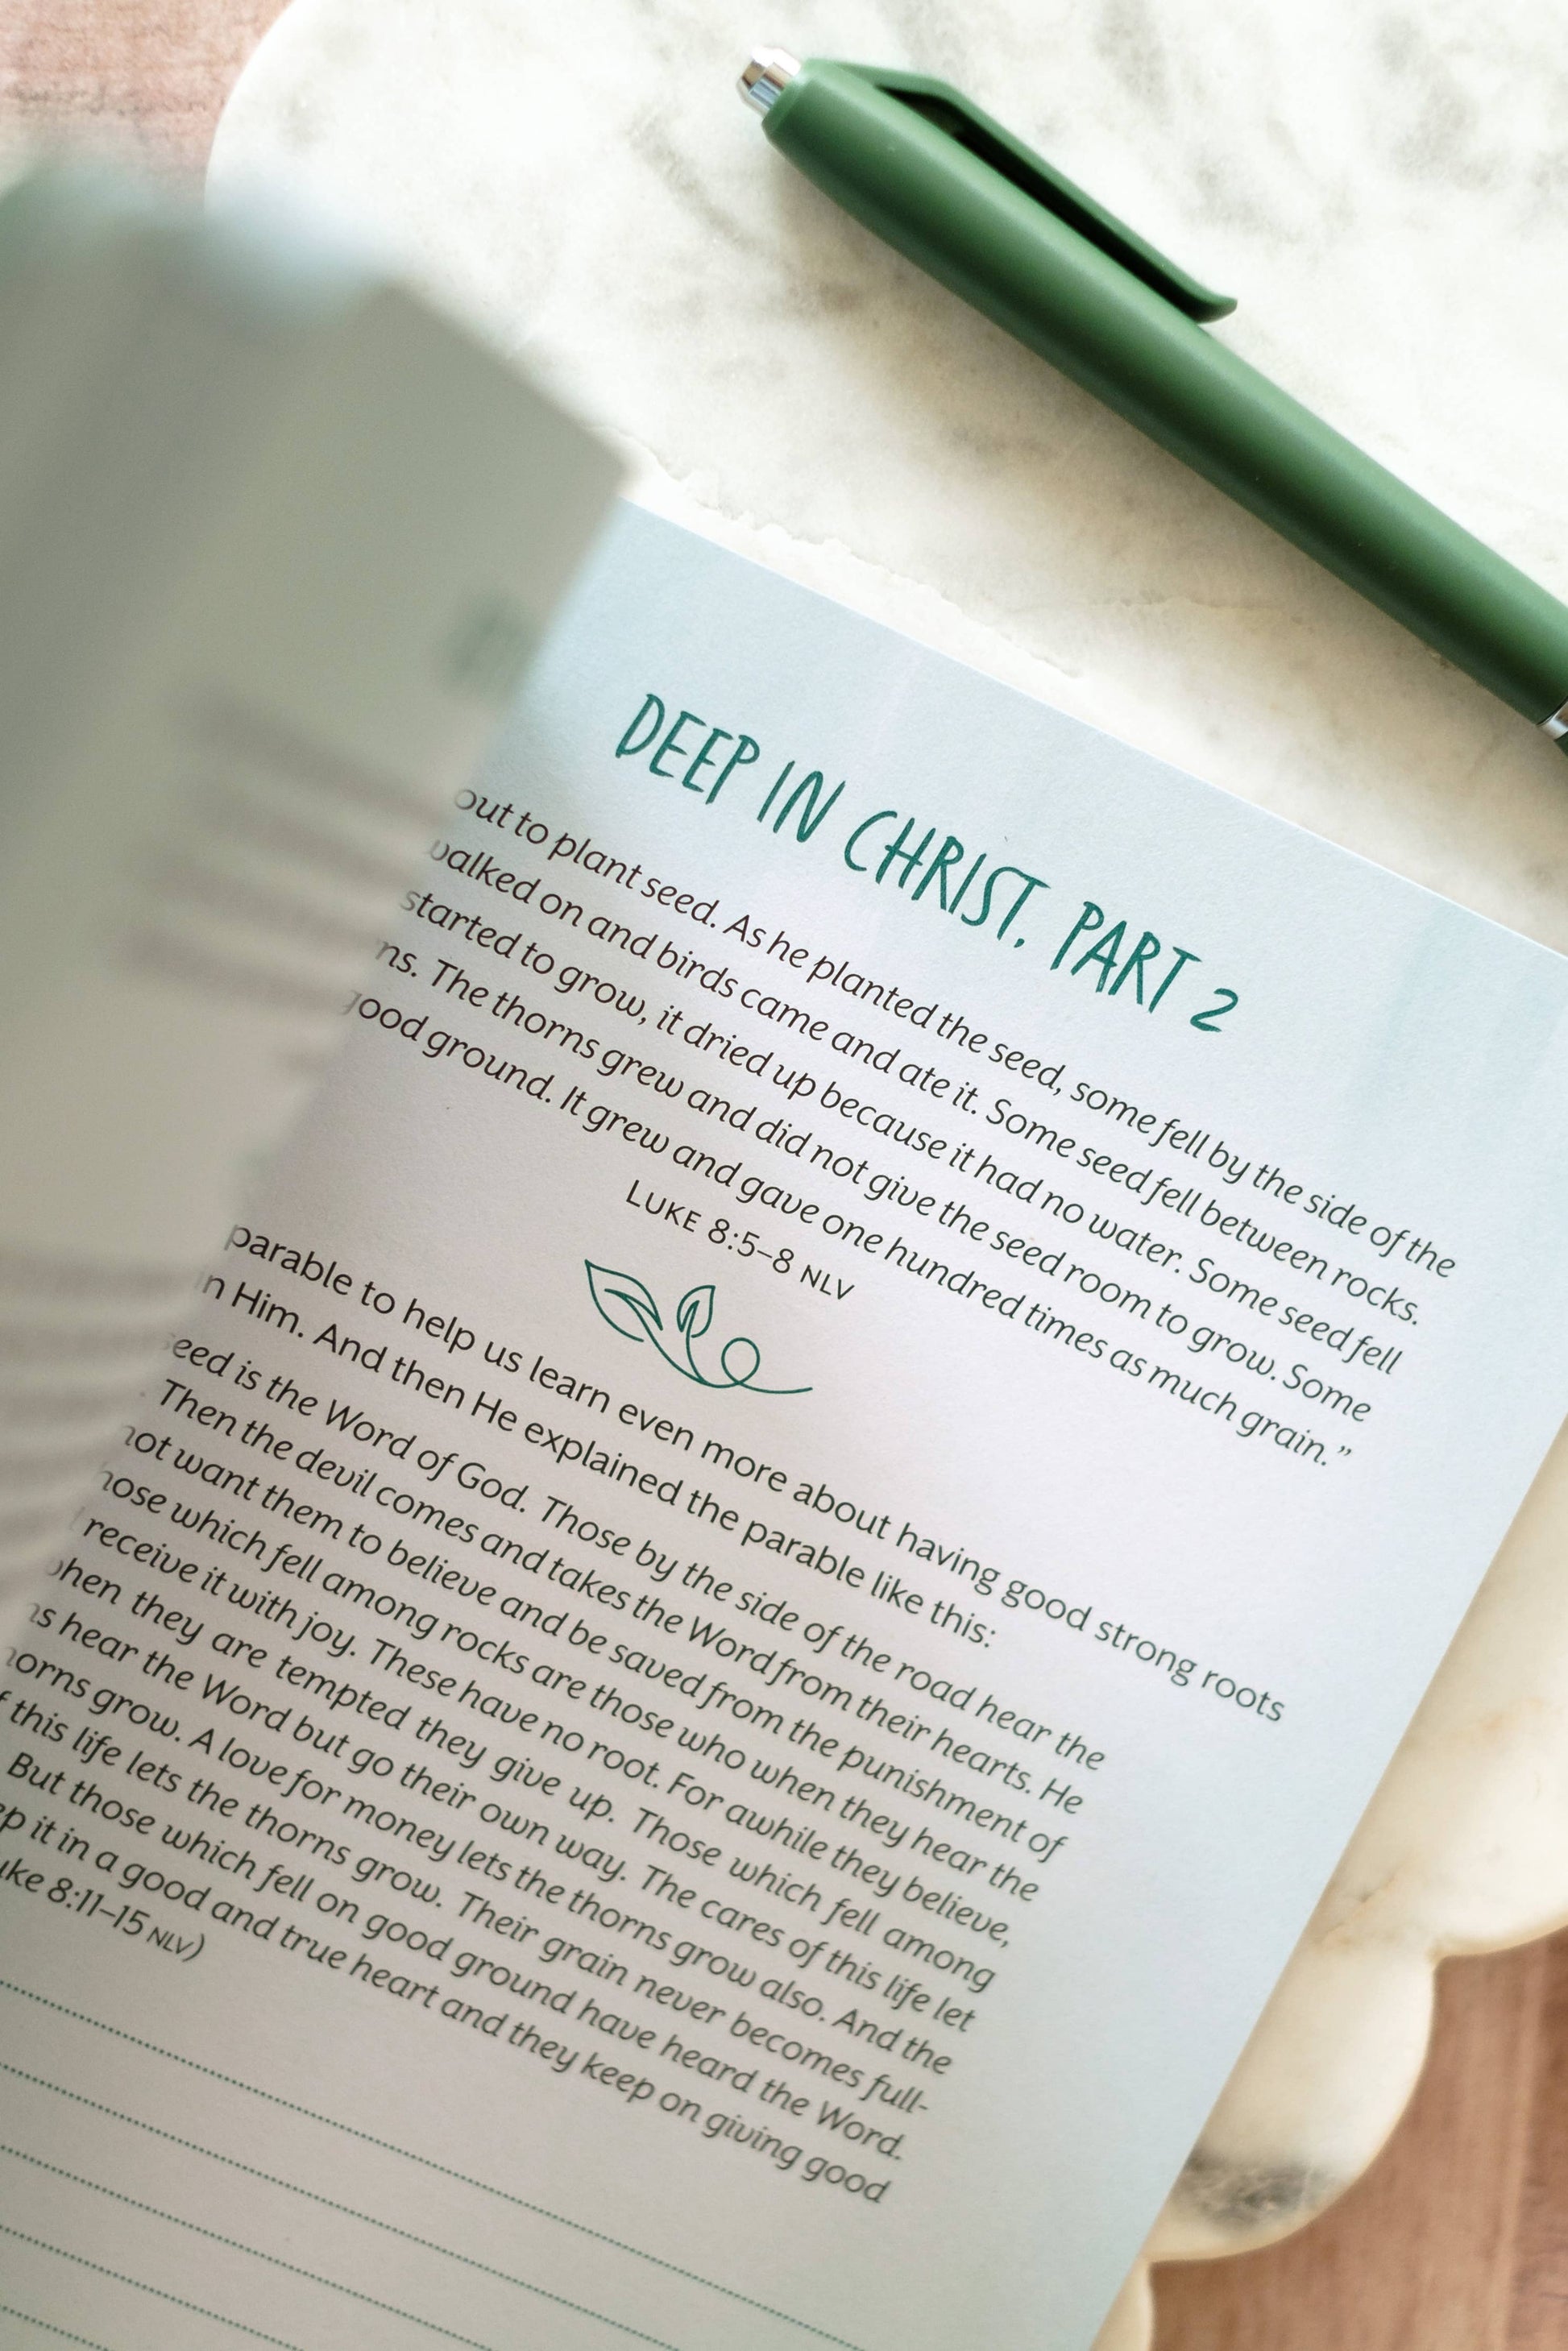 DEEP IN CHRIST, PART 2
out to plant seed. As he planted the seed, some fell by the side of the
walked on and birds came and ate it. Some seed fell between rocks.
started to grow, it dried up because it had no water. Some seed fell
The thorns grew and did not give the seed room to grow. Some
good ground. It grew and gave one hundred times as much grain.”
LUKE 8:5–8 NLV
parable to help us learn even more about having good strong roots
in Him. And then He explained the parable like this:
seed is the Word of God. Those by the side of the road hear the
Then the devil comes and takes the Word from their hearts. He
not want them to believe and be saved from the punishment of
those which fell among rocks are those who when they hear the
receive it with joy. These have no root. For awhile they believe,
when they are tempted they give up. Those which fell among
hear the Word but go their own way. The cares of this life let
thorns grow. A love for money lets the thorns grow also. And the
of this life lets the thorns grow. Their grain never becomes full-
But those which fell on good ground have heard the Word.
it in a good and true heart and they keep on giving good
Luke 8:11–15 NLV)